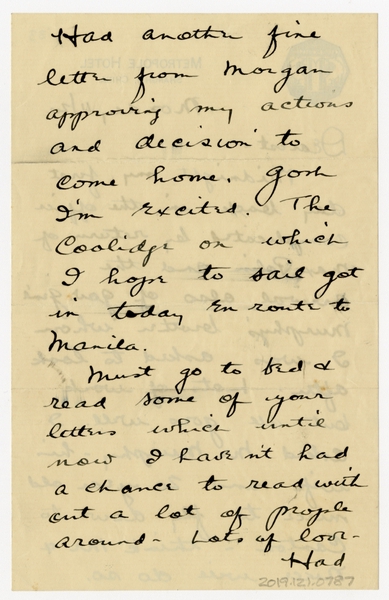 Had another fine
letter from Morgan
approving my actions
and decision to
come home. Gosh
I'm excited. The
Coolidge on which
I hope to sail got
in today en route to
Manila.
Must go to bed &
read some of your
letters which until
now I haven't had
a chance to read with
out a lot of people
around - Lots of love -
Had
2019.121.0787